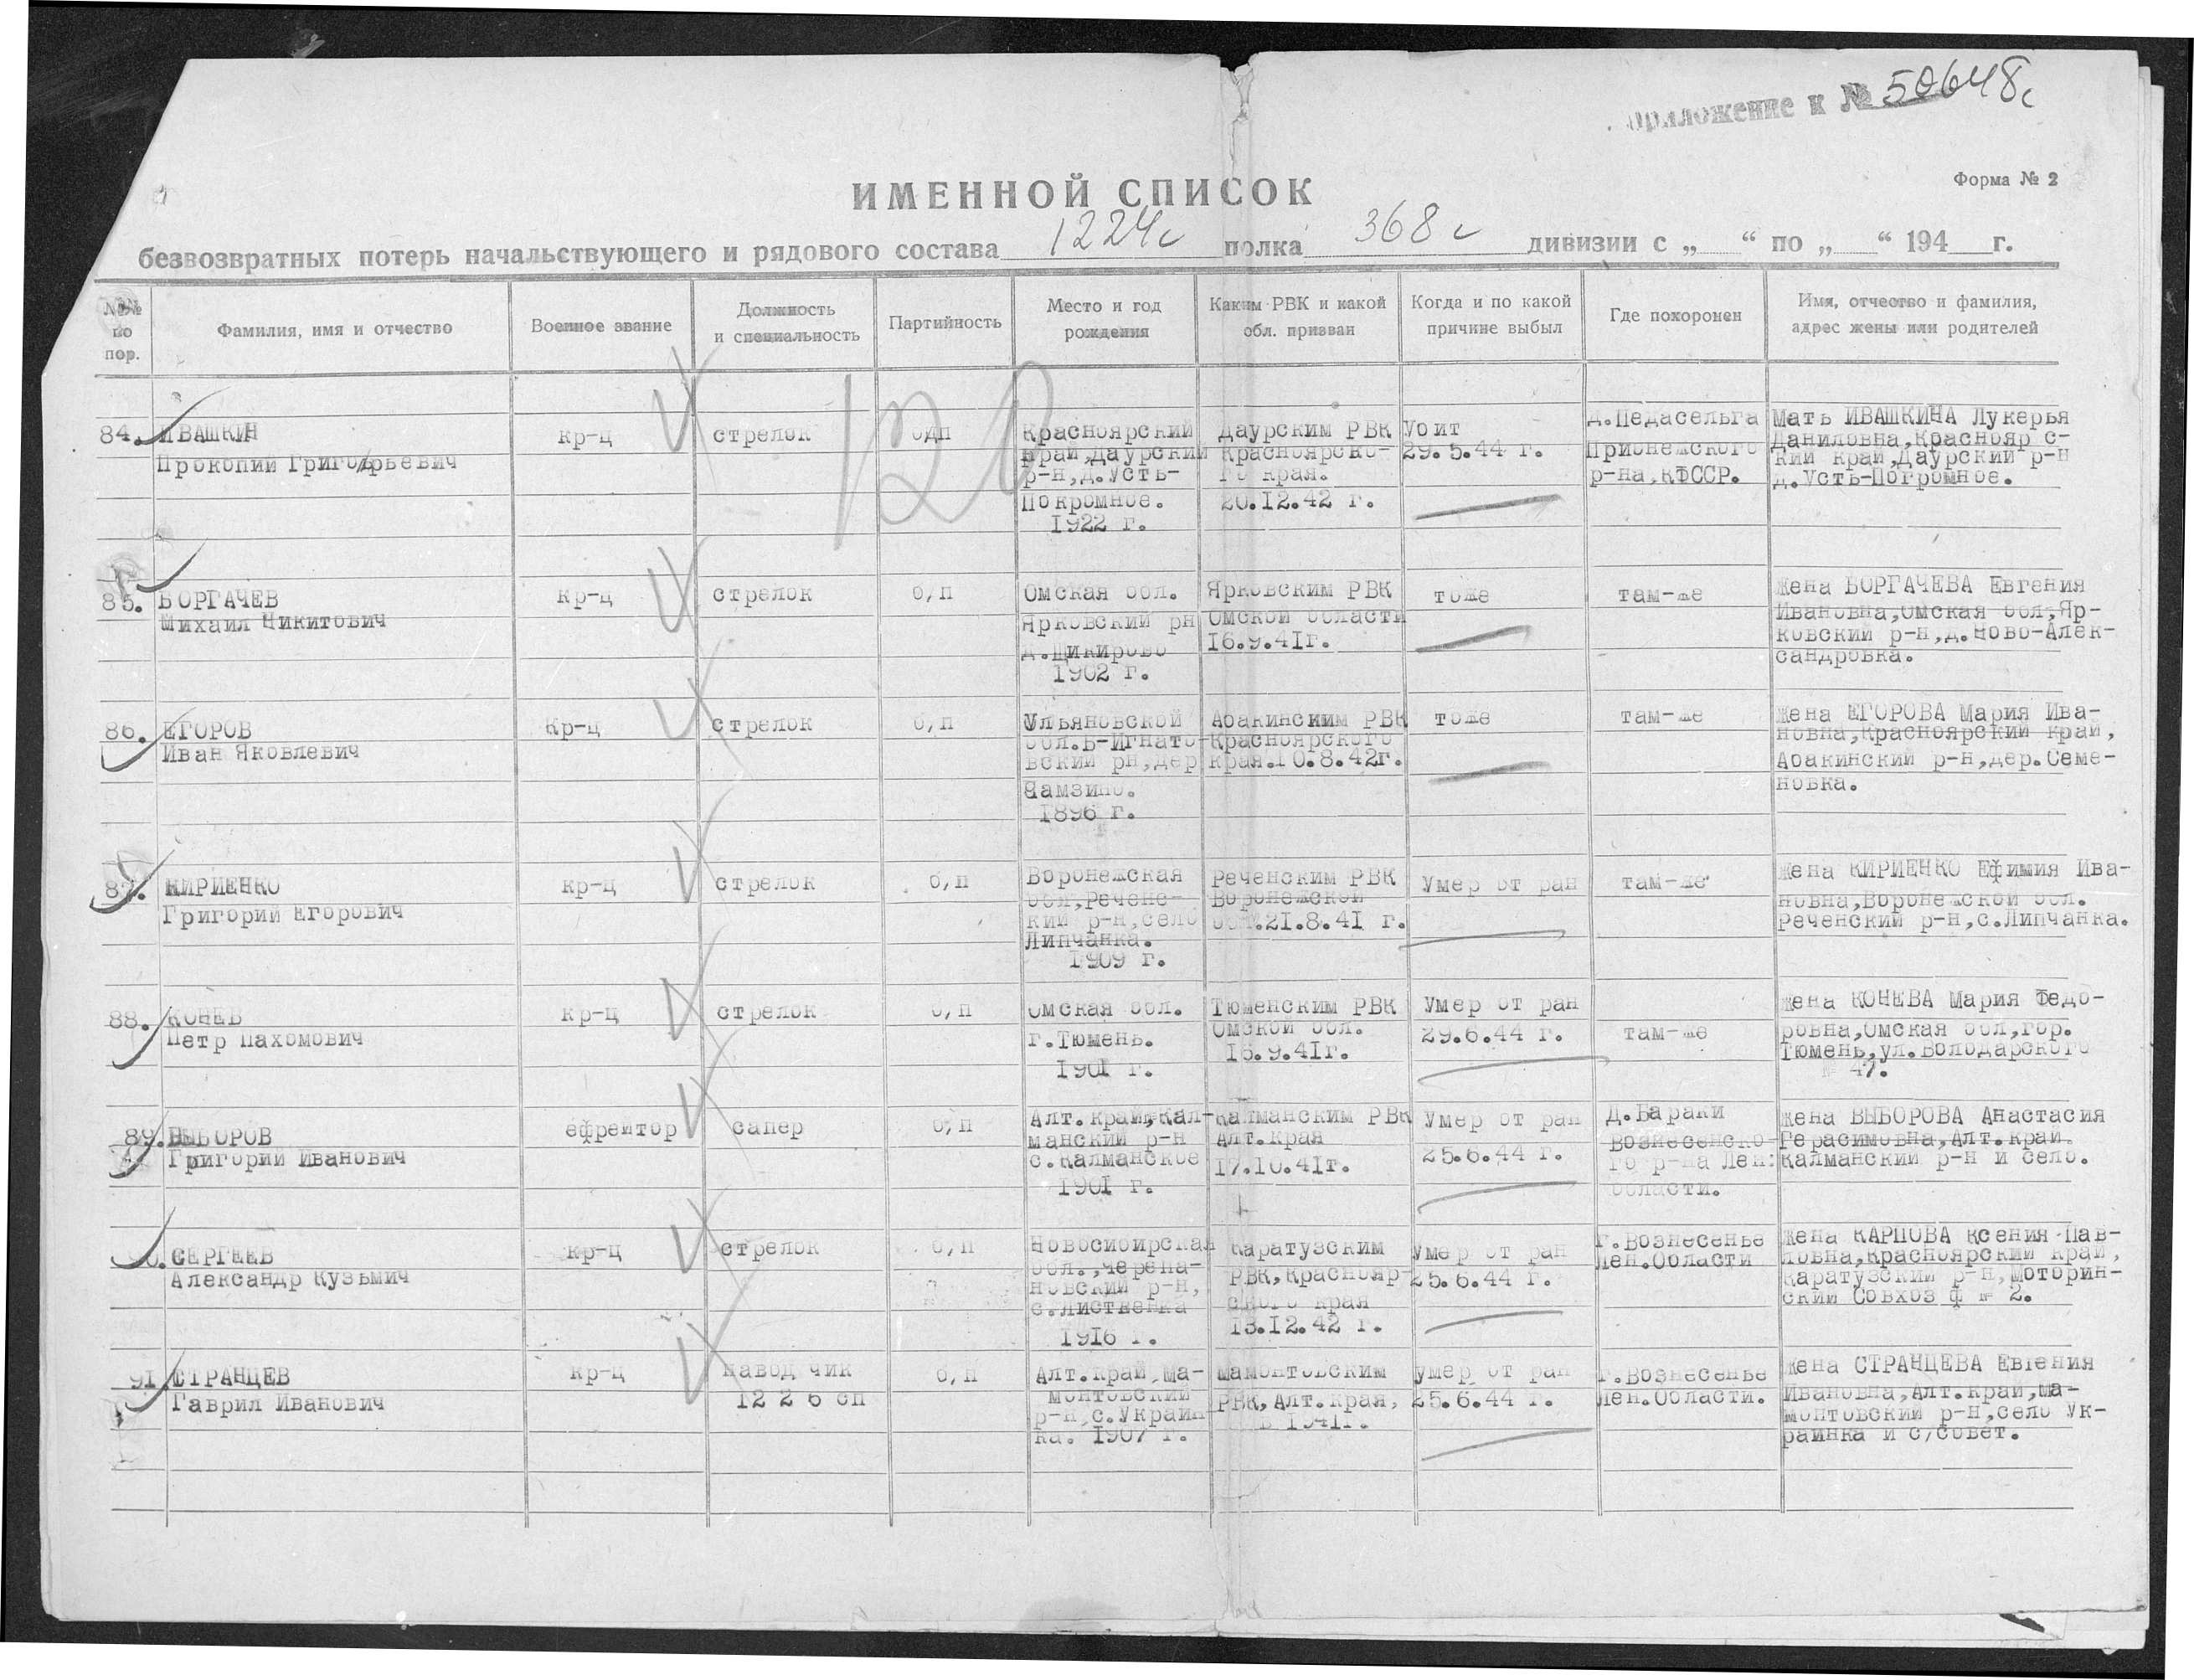 Приложение к № 50648с
Форма № 2
ИМЕННОЙ СПИСОК
безвозвратных потерь начальствующего и рядового состава 1224с полка 368с дивизии с „ “ по „ “ 194 г.
№№ по пор.
Фамилия, имя и отчество
Военное звание
Должность и специальность
Партийность
Место и год рождения
Каким РВК и какой обл. призван
Когда и по какой причине выбыл
Где похоронен
Имя, отчество и фамилия, адрес жены или родителей
120
84. ИВАШКИН
Прокопий Григорьевич
кр-ц
стрелок
б/п
Красноярский
край,Даурский
р-н,д.Усть-
Покромное.
1922 г.
Даурским РВК
Красноярско-
го края.
20.12.42 г.
Убит
29.5.44 г.
д.Педасельга
Прионежского
р-на,КФССР.
Мать ИВАШКИНА Лукерья
Даниловна,Краснояр с-
кий край,Даурский р-н
д.Усть-Погромное.
85. БОРГАЧЕВ
Михаил Никитович
кр-ц
стрелок
б/п
Омская обл.
Ярковский рн
1902 г.
Ярковским РВК
Омской области
16.9.41г.
тоже
там-же
Жена БОРГАЧЕВА Евгения
Ивановна,Омская обл,Яр-
ковский р-н,д.Ново-Алек-
сандровка.
86. ЕГОРОВ
Иван Яковлевич
Кр-ц
стрелок
б/п
Ульяновской
обл.Б-Игнато-
вский рн,дер
Чамзино.
1896 г.
Абакинским РВК
Красноярского
края.10.8.42г.
тоже
там-же
Жена ЕГОРОВА Мария Ива-
новна,Красноярский край,
Абакинский р-н,дер.Семе-
новка.
87. КИРИЕНКО
Григорий Егорович
кр-ц
стрелок
б/п
Воронежская
обл,Реченс-
кий р-н,село
Липчанка.
1909 г.
Реченским РВК
Воронежской
обл.21.8.41 г.
Умер от ран
там-же
Жена КИРИЕНКО Ефимия Ива-
новна,Воронежской обл.
Реченский р-н,с.Липчанка.
88. КОНЕВ
Петр Пахомович
кр-ц
стрелок
б/п
Омская обл.
г.Тюмень.
1901 г.
Тюменским РВК
Омской обл.
16.9.41г.
Умер от ран
29.6.44 г.
там-же
Жена КОНЕВА Мария Федо-
ровна,Омская обл,гор.
Тюмень,ул.Володарского
№ 47.
89. ВЫБОРОВ
Григорий Иванович
ефрейтор
сапер
б/п
Алт.край,Кал-
манский р-н
с.Калманское
1901 г.
Калманским РВК
Алт.края
17.10.41г.
Умер от ран
25.6.44 г.
Д.Бараки
Вознесенско-
го р-на Лен.
области.
Жена ВЫБОРОВА Анастасия
Герасимовна,Алт.край.
Калманский р-н и село.
90. СЕРГЕЕВ
Александр Кузьмич
кр-ц
стрелок
б/п
Новосибирская
обл.,Черепа-
новский р-н,
с.Листвянка
1916 г.
Каратузским
РВК,Краснояр-
ского края
13.12.42 г.
Умер от ран
25.6.44 г.
г.Вознесенье
Лен.Области
Жена КАРПОВА Ксения Пав-
ловна,Красноярский край,
Каратузский р-н,Моторин-
ский Совхоз ф № 2.
91. СТРАНЦЕВ
Гаврил Иванович
кр-ц
Навод чик
12 2 6 сп
б/п
Алт.край,Ма-
монтовский
р-н,с.Украин
ка. 1907 г.
Мамонтовским
РВК,Алт.края,
в 1941г.
умер от ран
25.6.44 г.
г.Вознесенье
Лен.Области.
Жена СТРАНЦЕВА Евгения
Ивановна,Алт.край,Ма-
монтовский р-н,село Ук-
раинка и с/совет.